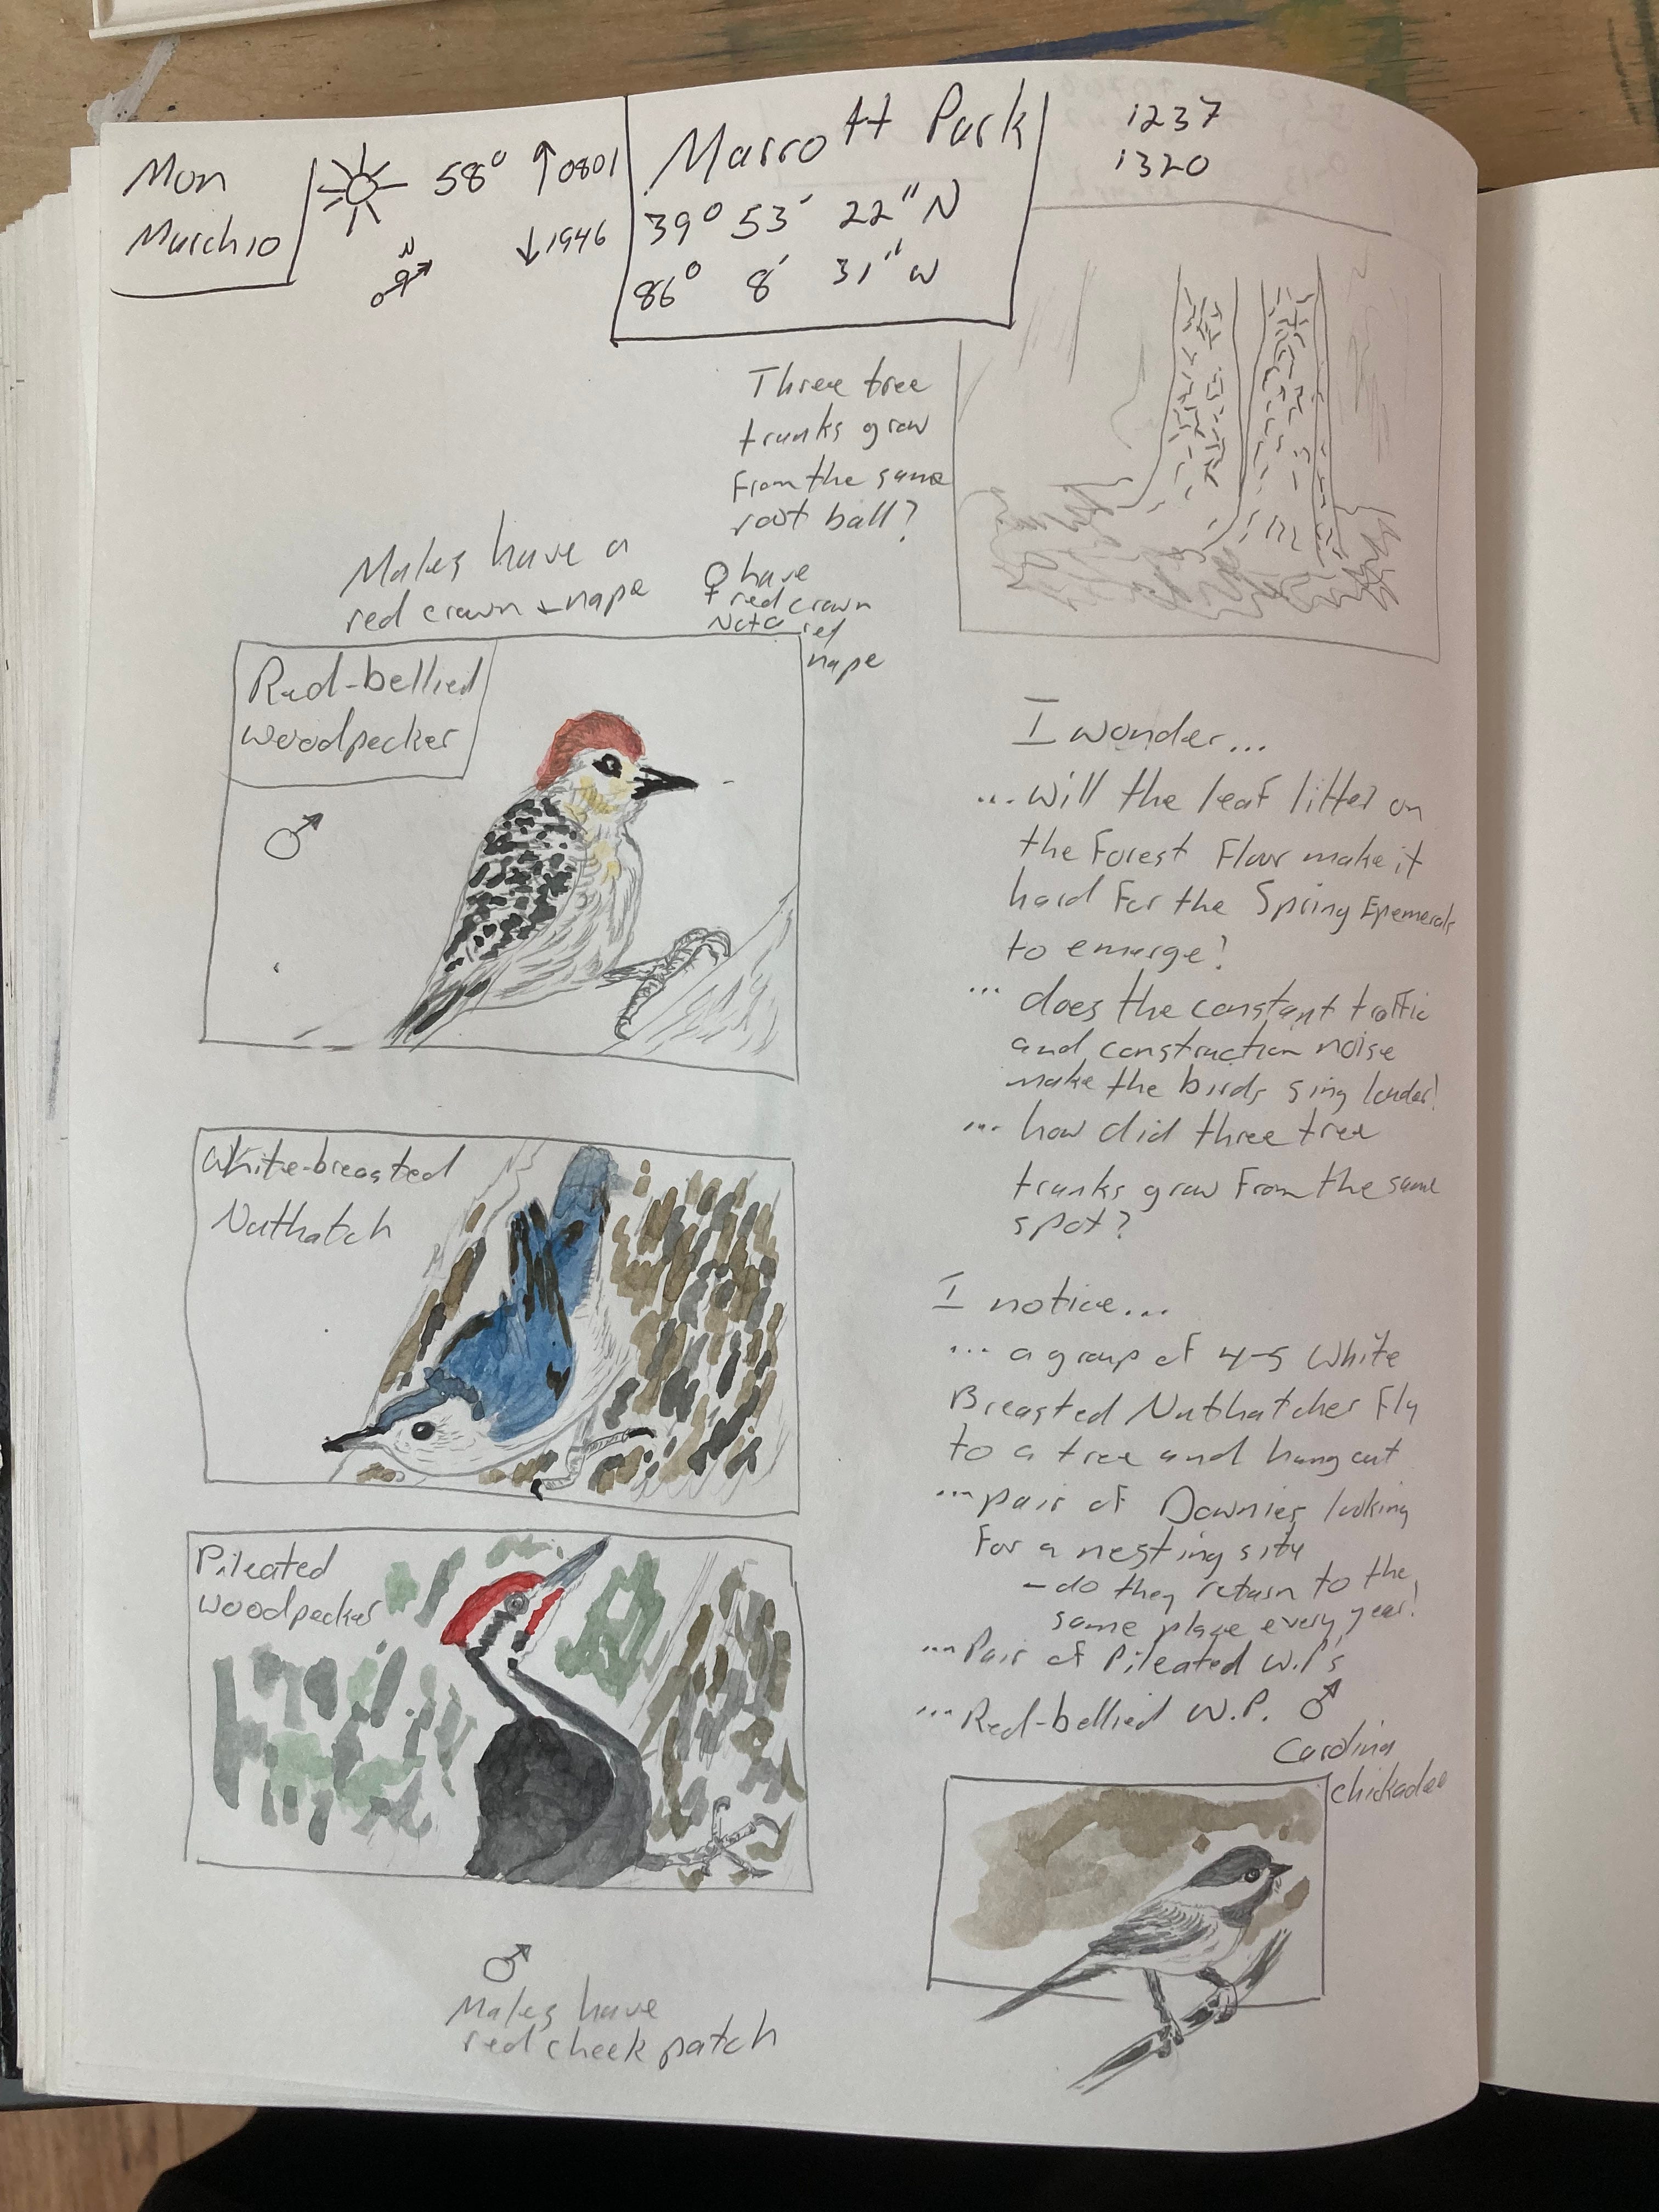 Mon
March 10
58° ↑0801
↓1946
N
Marrott Park
39° 53' 22" N
86° 8' 31" W
1237
1320
Three tree
trunks grow
from the same
root ball?
Males have a
red crown + nape
♀ have
red crown
Not a red
nape
Red-bellied
woodpecker
♂
I wonder...
... will the leaf litter on
the Forest Floor make it
hard for the Spring Epemerals
to emerge?
... does the constant traffic
and construction noise
make the birds sing louder?
... how did three tree
trunks grow from the same
spot?
White-breasted
Nuthatch
I notice...
... a group of 4-5 White
Breasted Nuthatches fly
to a tree and hang out
... pair of Downies looking
for a nesting site
- do they return to the
same place every year?
... Pair of Pileated W.P.'s
... Red-bellied W.P. ♂
Pileated
woodpecker
♂
Males have
red cheek patch
Carolina
chickadee